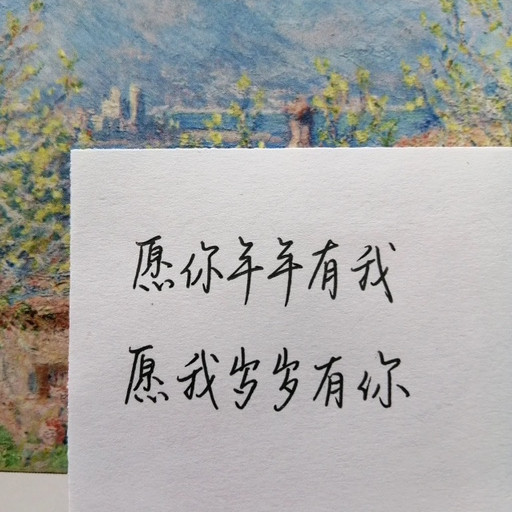 愿你年年有我
愿我岁岁有你